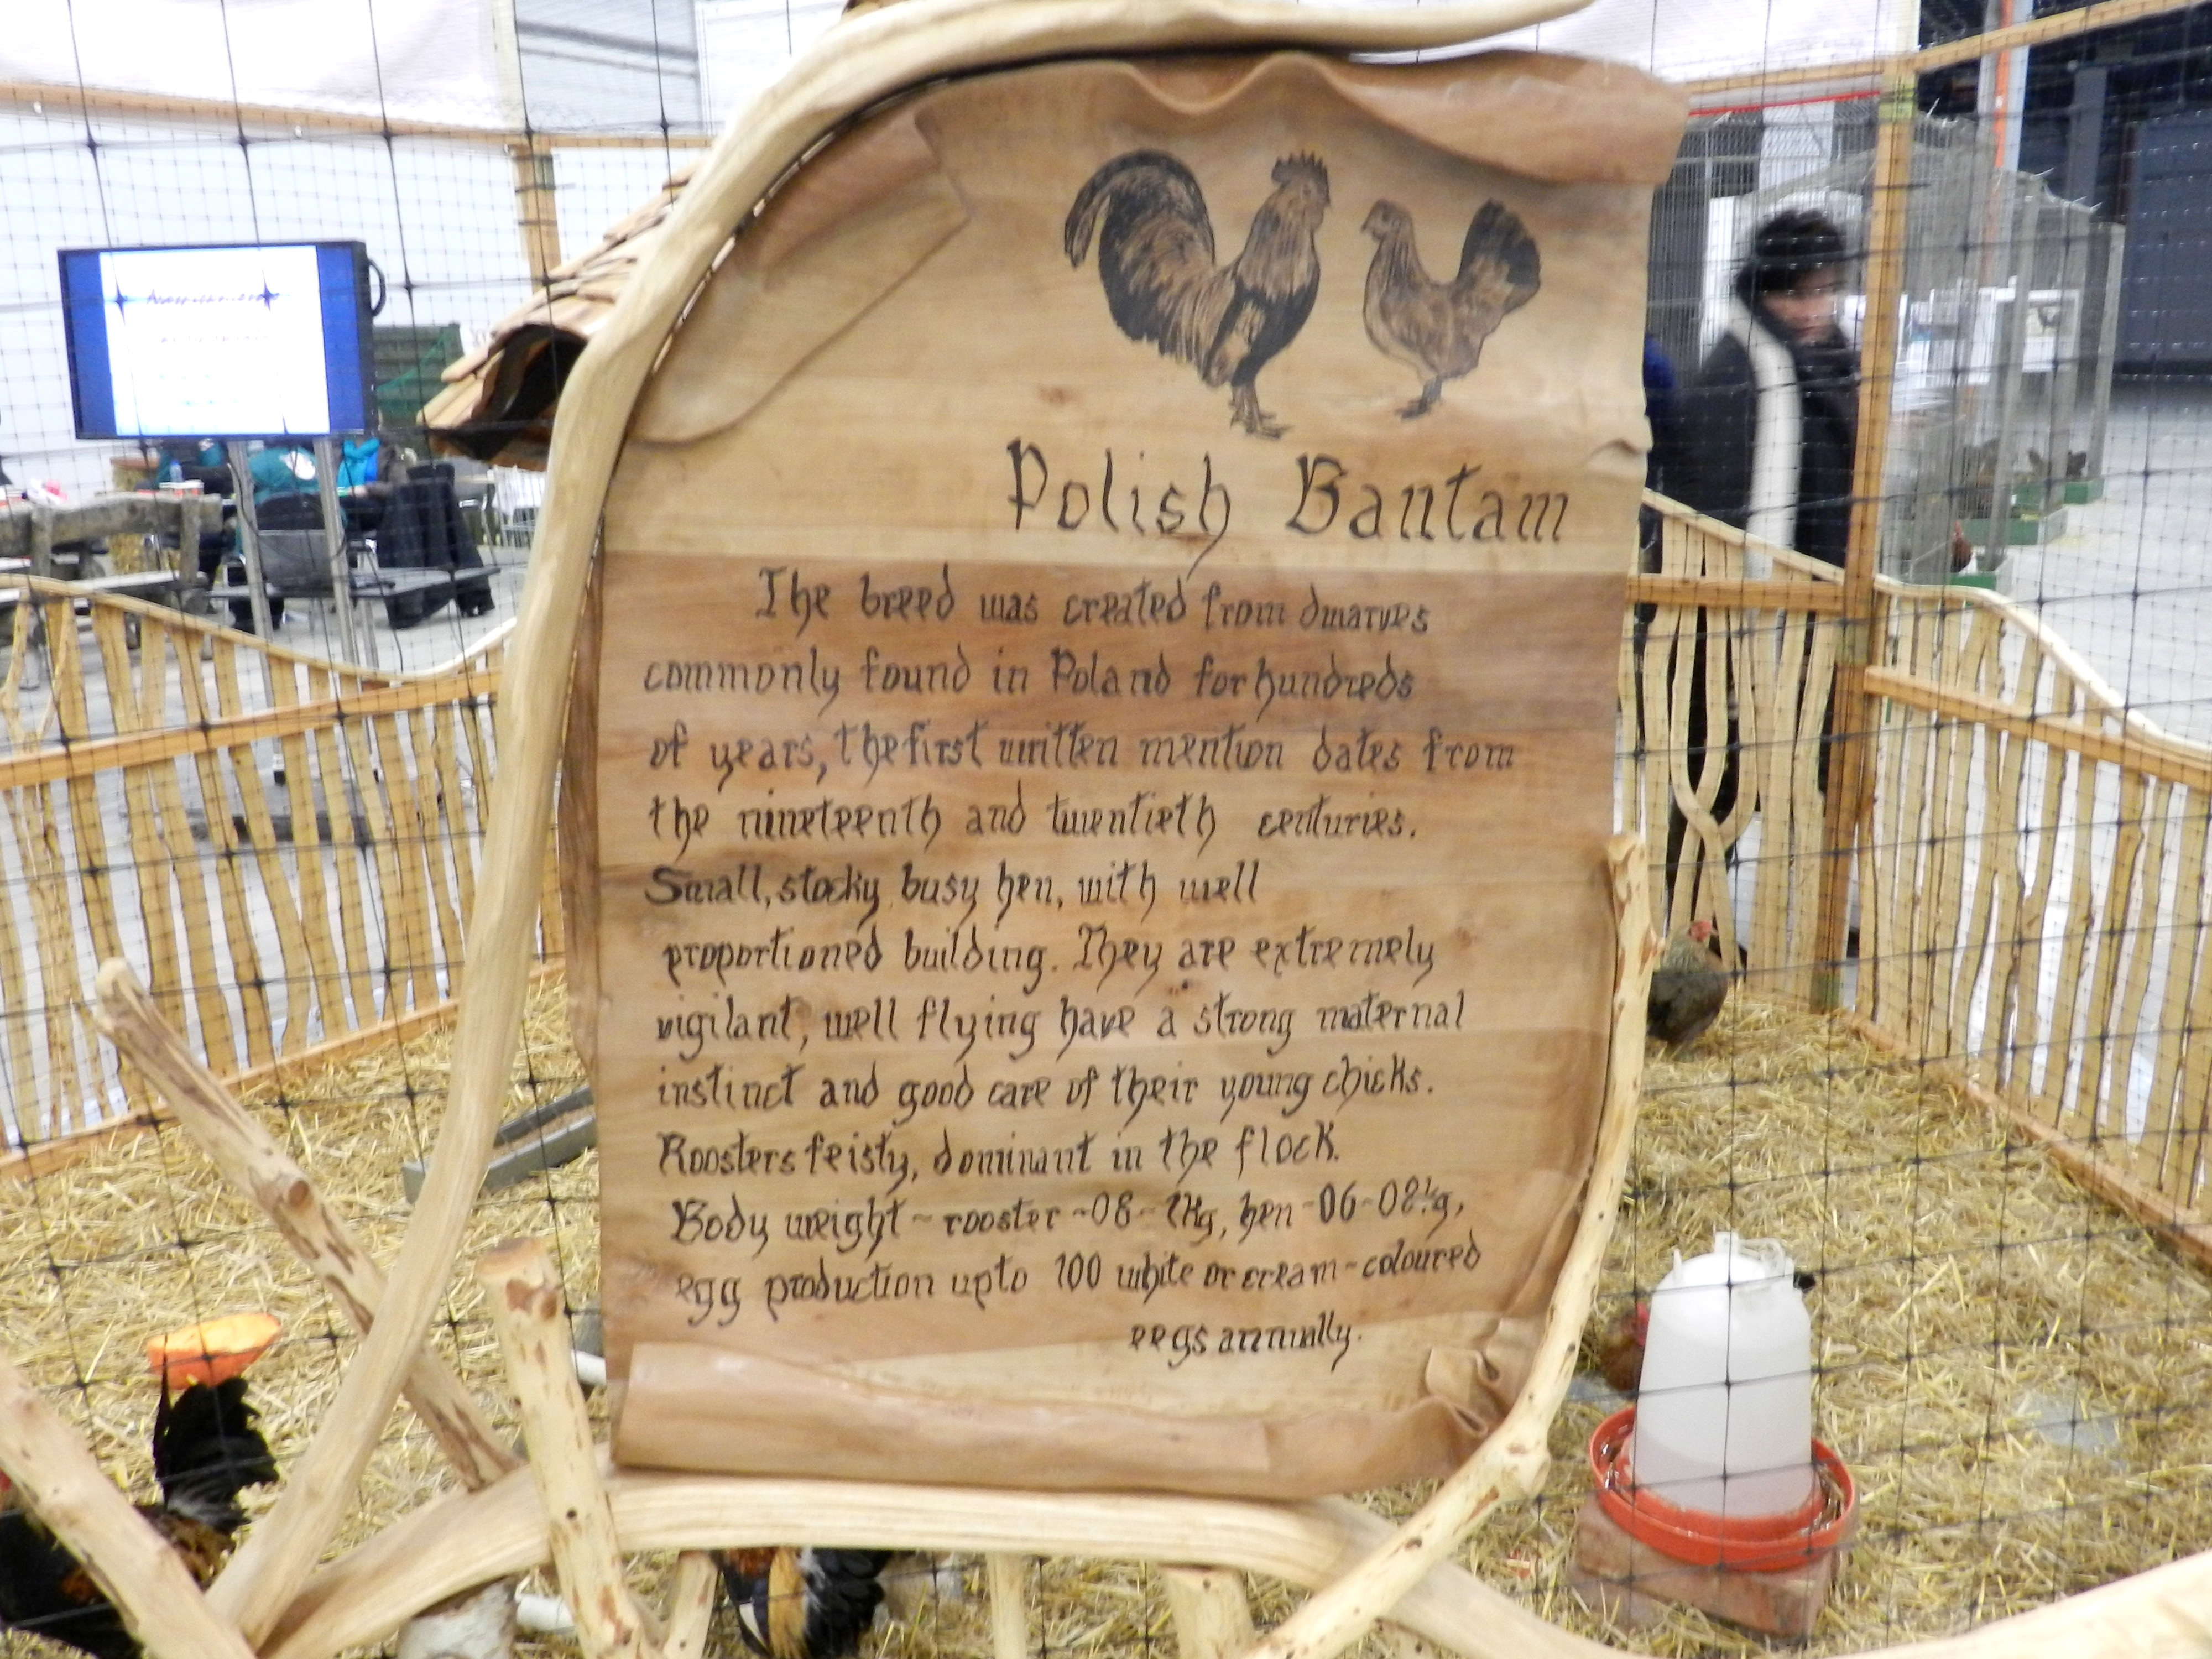 Polish Bantam
The breed was created from dwarves
commonly found in Poland for hundreds
of years, the first written mention dates from
the nineteenth and twentieth centuries.
Small, stocky busy hen, with well
proportioned building. They are extremely
vigilant, well flying have a strong maternal
instinct and good care of their young chicks.
Roosters feisty, dominant in the flock.
Body weight - rooster - 08 - 1Kg, hen - 06 - 08kg,
egg production upto 100 white or cream-coloured
eegs annually.